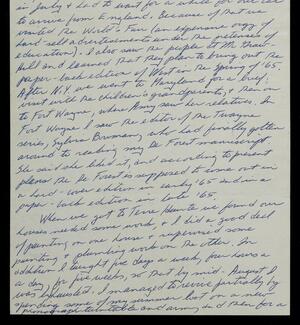 in July & had to wait for a while for our car
to arrive from England. Because of the time
wanted the World's Fair (an expensive orgy of
hard sell advertisements under the pretenses of
education). I also saw the people at
and learned that they plan to bring out the
paper-back edition of West in the Spring of '65.
After N.Y. we went to Maryland for a brief
visit with the children's grandparents, & then on
to Fort Wayne, where Amy saw her relatives. In
Fort Wayne I saw the editor of the Twayne
series, Sylvia Bowman, who had finally gotten
around to reading my De Forest manuscript.
She said she liked it, and according to present
plans the De Forest is supposed to come out in
a hard-cover edition in early '65 and in a
paper-back edition in late '65.
When we got to Terre Haute we found our
houses needed some work, so I did a good deal
of painting on one house & supervised some
painting & plumbing work on the other. In
addition I taught five days a week, four hours a
a day, for five weeks, so that by mid-August I
was exhausted. I managed to revive partially by
spending some of my summer loot on a new
phonograph turntable and arm, so I've been for a